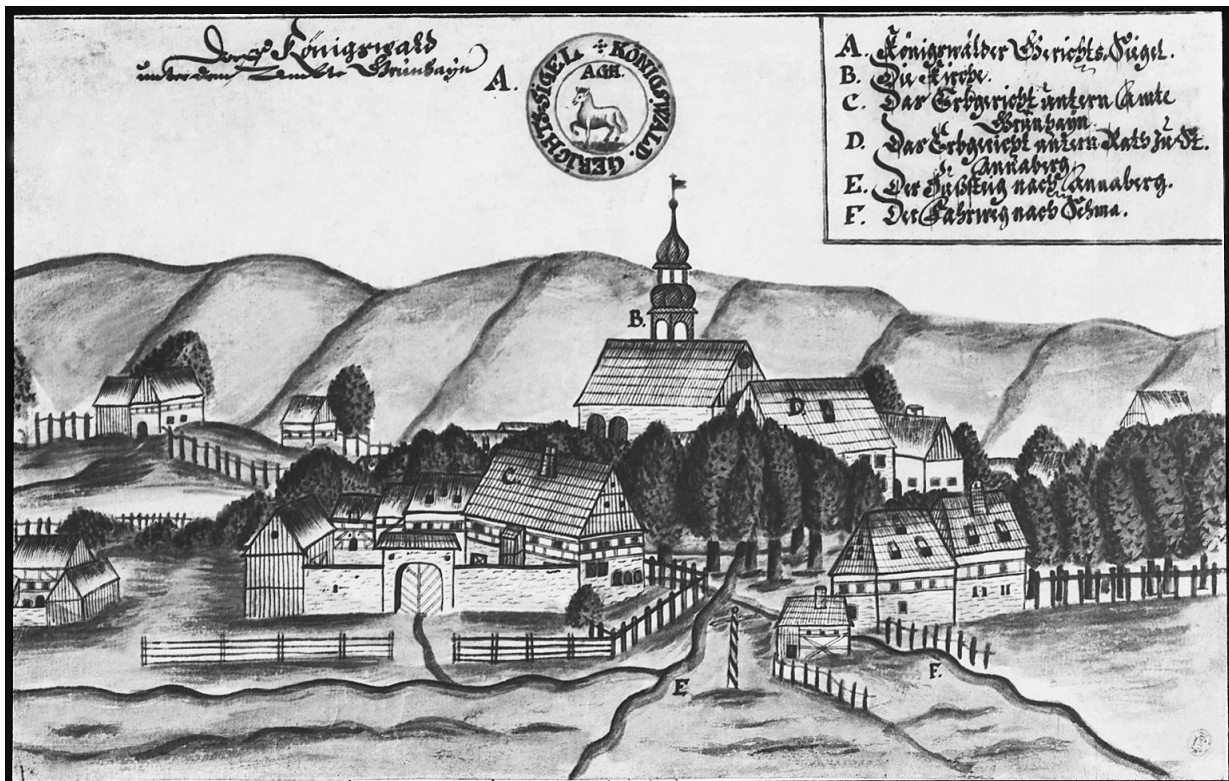 Dorff Königswald
unter dem Ambte Grünhayn
A.
GERICHTS-SIGEL ✣ KÖNIGSWALD.
AGH.
A. Königswälder Gerichts-Sigel.
B. Die Kirche.
C. Das Erbgericht untern Amte
Grünhayn.
D. Das Erbgericht untern Rath zu St.
Annaberg.
E. Der Fußsteig nach Annaberg.
F. Der Fahrweg nach Sehma.
B.
D
C
E
F.